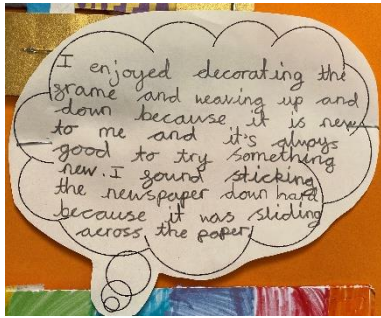 I enjoyed decorating the
frame and weaving up and
down because it is new
to me and it's always
good to try something
new. I found sticking
the newspaper down hard
because it was sliding
across the paper.